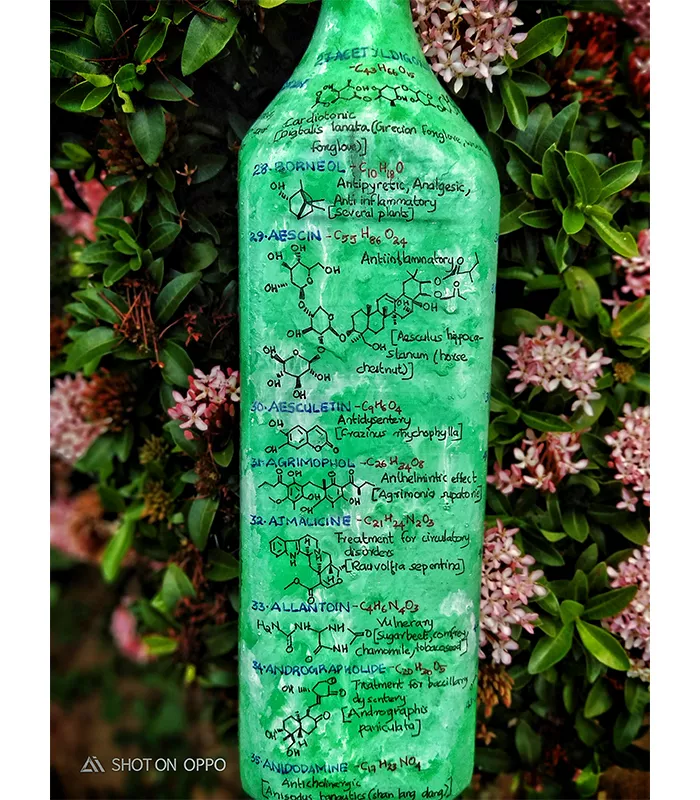 27-ACETYLDIGO
-C43H66O15
Cardiotonic
[Digitalis lanata (Grecian Foxglove,
foxglove)]
28-BORNEOL-C10H18O
OH
Antipyretic, Analgesic,
Anti inflammatory
[several plants]
29-AESCIN-C55H86O24
Antiinflammatory
[Aesculus hippoca-
stanum (horse
chestnut)]
30-AESCULETIN-C9H6O4
Antidysentery
[Frazinus rhychophylla]
31-AGRIMOPHOL-C26H34O8
Anthelmintic effect
[Agrimonia supatoria]
32-AJMALICINE-C21H24N2O3
Treatment for circulatory
disorders
[Rauvolfia sepentina]
33-ALLANTOIN-C4H6N4O3
H2N NH NH O
Vulnerary
[sugarbeet, comfrey,
chamomile, tobaccoseed]
34-ANDROGRAPHOLIDE-C20H30O5
Treatment for baccillary
dysentery
[Andrographis
paniculata]
35-ANIDODAMINE-C17H23NO4
Anticholinergic
[Anisodus tanguticus (shan lang dang)]
SHOT ON OPPO